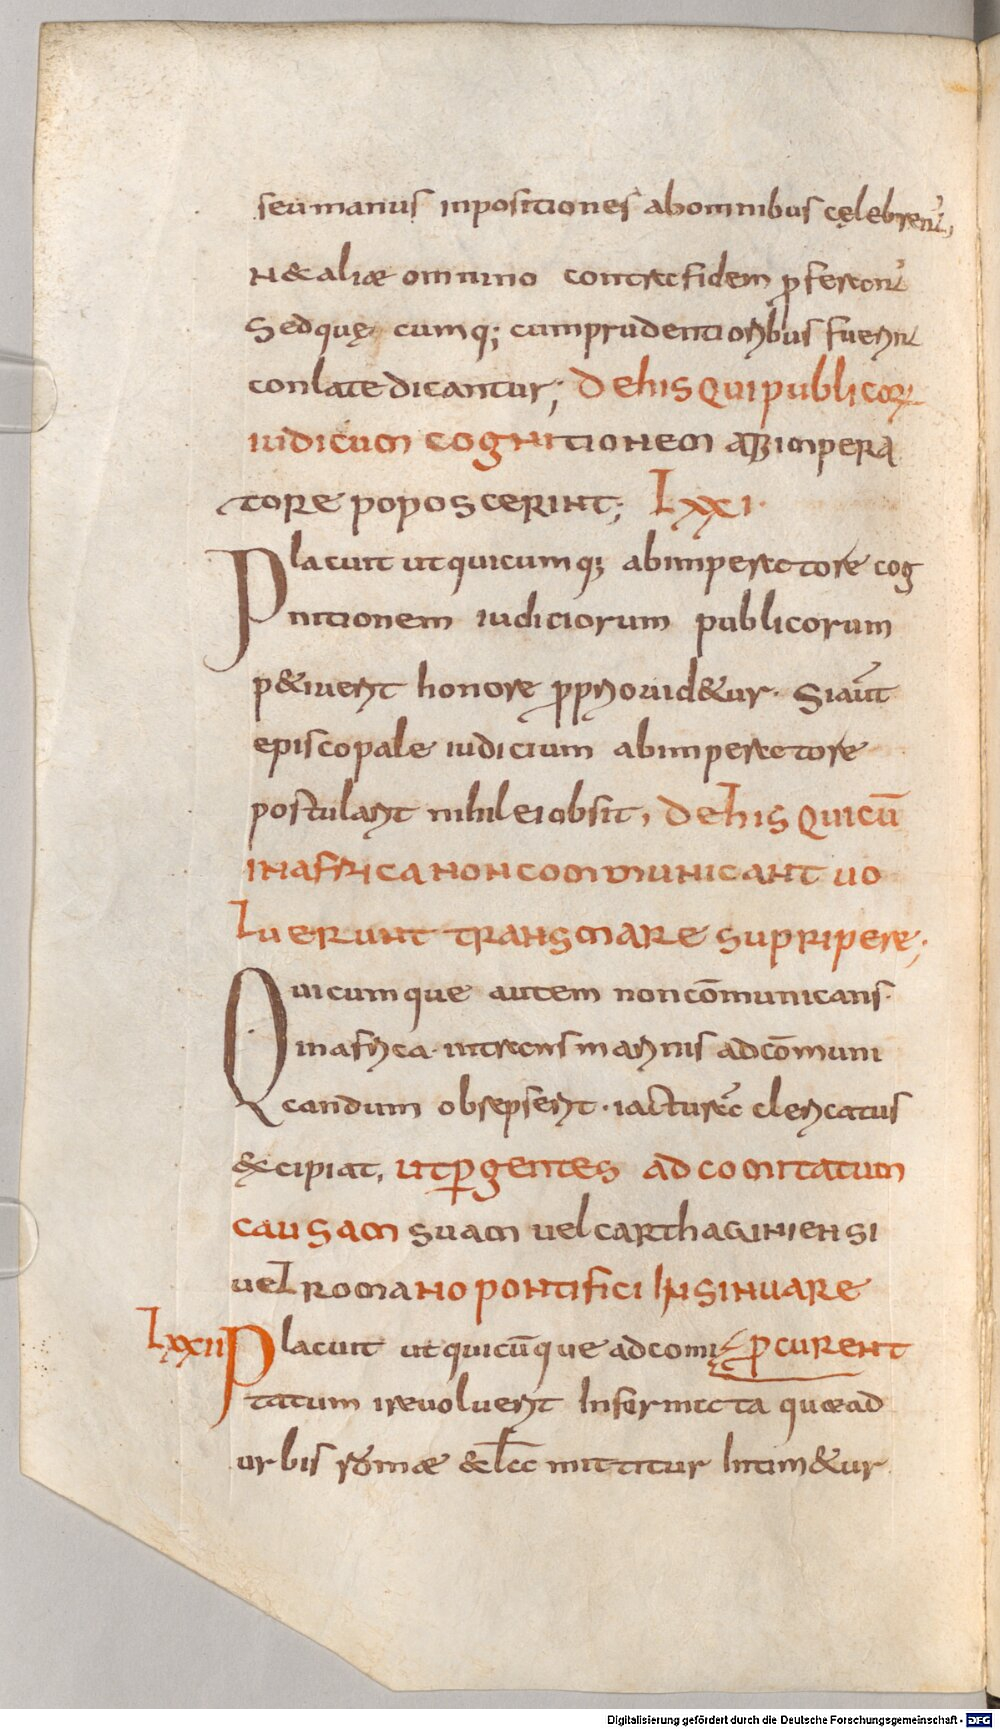 seu manus inpositiones ab omnibus celebrent̉,
n& aliae omnino contra fidem ꝓferant̉
Sed quę cumq; cum prudentioribus fuerint
conlate dicantur; De his qui publicoꝝ
iudicum cognitionem ab impera
tore poposcerint; Lxxi·
Placuit ut quicumq; ab imperatore cog
nitionem iudiciorum publicorum
p&iuerit honore ꝓprio uid&ur· Si aūt
episcopale iudicium ab imperatore
postularit nihil ei obsit, De his qui cū
in africa non communicant uo
luerunt transmare supripere;
Quicumque autem non cōmunicans·
in africa· in transmarinis ad cōmuni
candum obsepserit· iacturā clericatus
excipiat, ut ꝑgentes ad comitatum
causam suam uel carthaginiensi
uel romano pontifici insinuare
Lxxii Placuit ut quicūque ad comi ꝓcurent
tatum ire uoluerit In formata quae ad
urbis romae &cl̄ mittitur Intim&ur
Digitalisierung gefördert durch die Deutsche Forschungsgemeinschaft - DFG